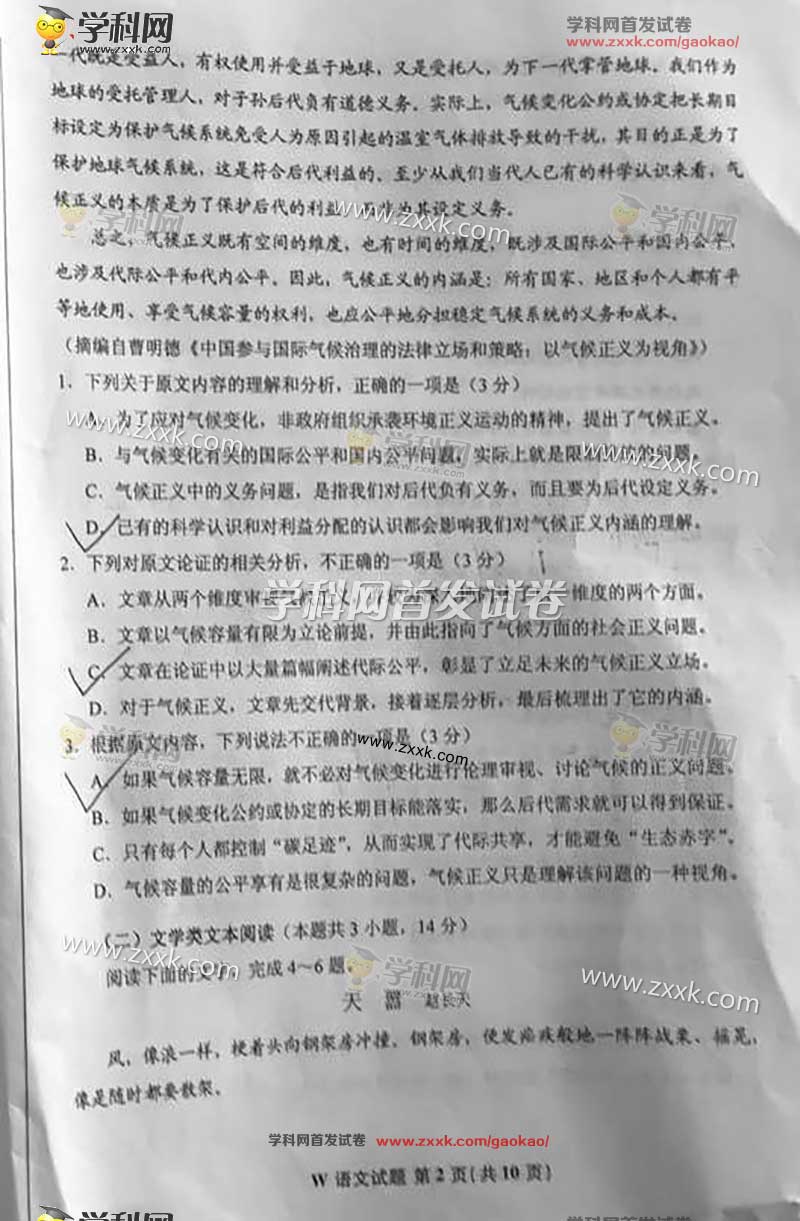 学科网
www.zxxk.com
学科网首发试卷
www.zxxk.com/gaokao/
一代既是受益人，有权使用并受益于地球，又是受托人，为下一代掌管地球。我们作为
地球的受托管理人，对于孙后代负有道德义务。实际上，气候变化公约或协定把长期目
标设定为保护气候系统免受人为原因引起的温室气体排放导致的干扰，其目的正是为了
保护地球气候系统，这是符合后代利益的。至少从我们当代人已有的科学认识来看，气
候正义的本质是为了保护后代的利益，而非为其设定义务。
总之，气候正义既有空间的维度，也有时间的维度，既涉及国际公平和国内公平，
也涉及代际公平和代内公平。因此，气候正义的内涵是：所有国家、地区和个人都有平
等地使用、享受气候容量的权利，也应公平地分担稳定气候系统的义务和成本。
（摘编自曹明德《中国参与国际气候治理的法律立场和策略：以气候正义为视角》）
1．下列关于原文内容的理解和分析，正确的一项是（3分）
A．为了应对气候变化，非政府组织承袭环境正义运动的精神，提出了气候正义。
B．与气候变化有关的国际公平和国内公平问题，实际上就是限制排放的问题。
C．气候正义中的义务问题，是指我们对后代负有义务，而且要为后代设定义务。
D．已有的科学认识和对利益分配的认识都会影响我们对气候正义内涵的理解。
2．下列对原文论证的相关分析，不正确的一项是（3分）
A．文章从两个维度审视气候正义，维度的两个方面。
B．文章以气候容量有限为立论前提，并由此指向了气候方面的社会正义问题。
C．文章在论证中以大量篇幅阐述代际公平，彰显了立足未来的气候正义立场。
D．对于气候正义，文章先交代背景，接着逐层分析，最后梳理出了它的内涵。
3．根据原文内容，下列说法不正确的一项是（3分）
A．如果气候容量无限，就不必对气候变化进行伦理审视、讨论气候的正义问题。
B．如果气候变化公约或协定的长期目标能落实，那么后代需求就可以得到保证。
C．只有每个人都控制“碳足迹”，从而实现了代际共享，才能避免“生态赤字”。
D．气候容量的公平享有是很复杂的问题，气候正义只是理解该问题的一种视角。
（二）文学类文本阅读（本题共3小题，14分）
阅读下面的文字，完成4～6题。
天 嚣 赵长天
风，像浪一样，梗着头向钢架房冲撞。钢架房，便发疟疾般地一阵阵战栗、摇晃，
像是随时都要散架。
学科网首发试卷 www.zxxk.com/gaokao/
W 语文试题 第 2 页(共 10 页)
学科网
www.zxxk.com